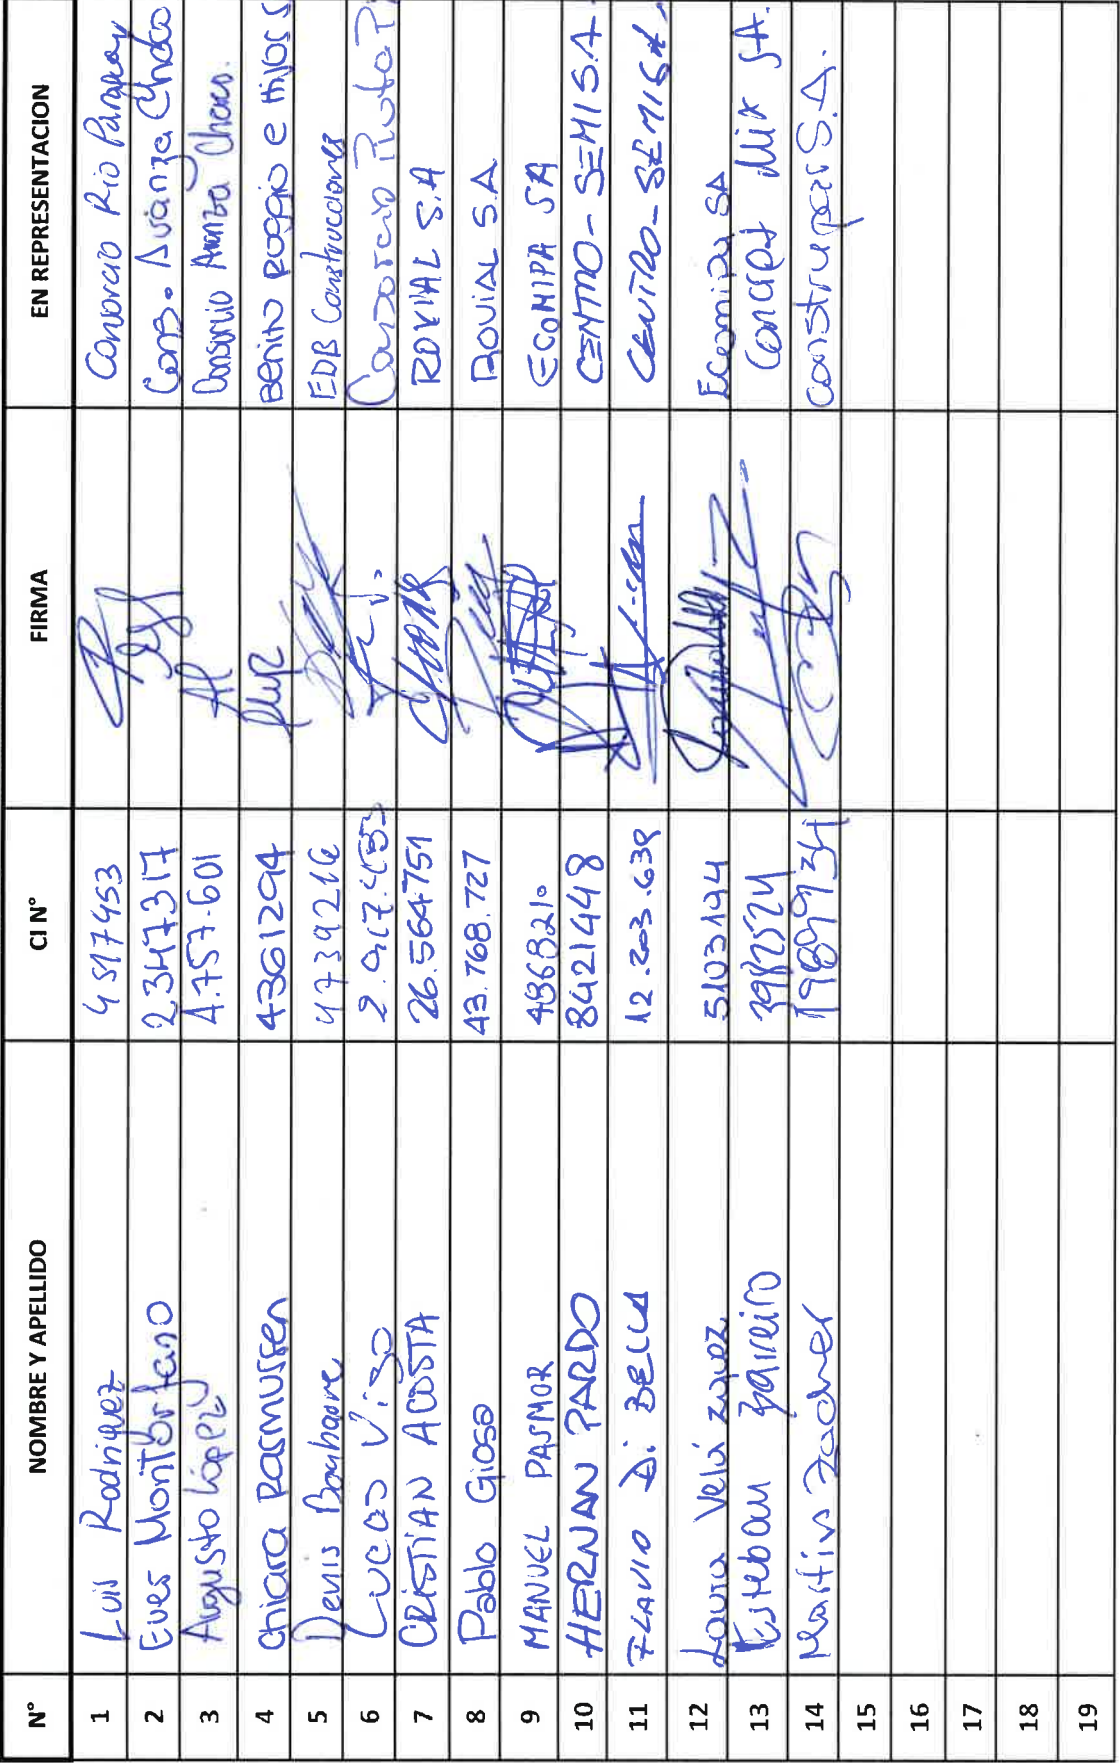 N° NOMBRE Y APELLIDO CI N° FIRMA EN REPRESENTACION
1 Luis Rodriguez 4517453 Consorcio Rio Paraguay
2 Eves Montórfano 2347317 Cons. Avanza Chaco
3 Augusto López 4.757.601 Consorcio Avanza Chaco.
4 Chiara Rasmussen 4361294 Benito Roggio e Hijos S
5 Denis 4739216 EDB Construcciones
6 Lucas Vigo Consorcio Ruta
7 CRISTIAN ACOSTA 26.564751 ROVIAL S.A
8 Pablo Giosa 43.768.727 ROVIAL S.A
9 MANUEL PASMOR 4868210 ECOMIPA SA
10 HERNAN PARDO 8421448 CENTRO-SEMI S.A.
11 FLAVIO Di BELLA 12.203.639 CENTRO-SEMI SA.
12 Laura 5103144 Ecomipa SA
13 Esteban 3982524 Concret Mix SA.
14 Martin construpar S.A.
15
16
17
18
19